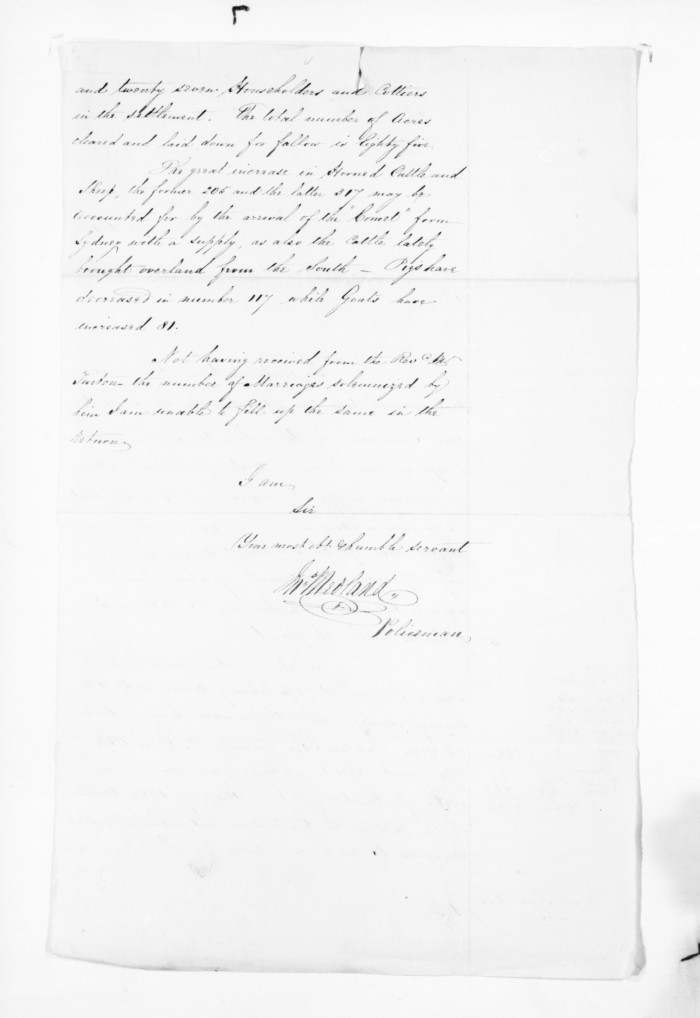 and twenty seven Householders and Cottiers
in the settlement. The total number of Acres
cleared and laid down for fallow is Eighty five.
The great increase in Horned Cattle and
Sheep, the former 205 and the latter 317 may be
accounted for by the arrival of the "Comet" from
Sydney with a supply, as also the Cattle lately
brought overland from the South — Pigs have
decreased in number 117 while Goats have
increased 81.
Not having received from the Revd. Mr
Turton the number of Marriages solemnized by
him I am unable to fill up the same in the
return.
I am,
Sir
Your most obt. & humble servant
Jno. Medland
Policeman,